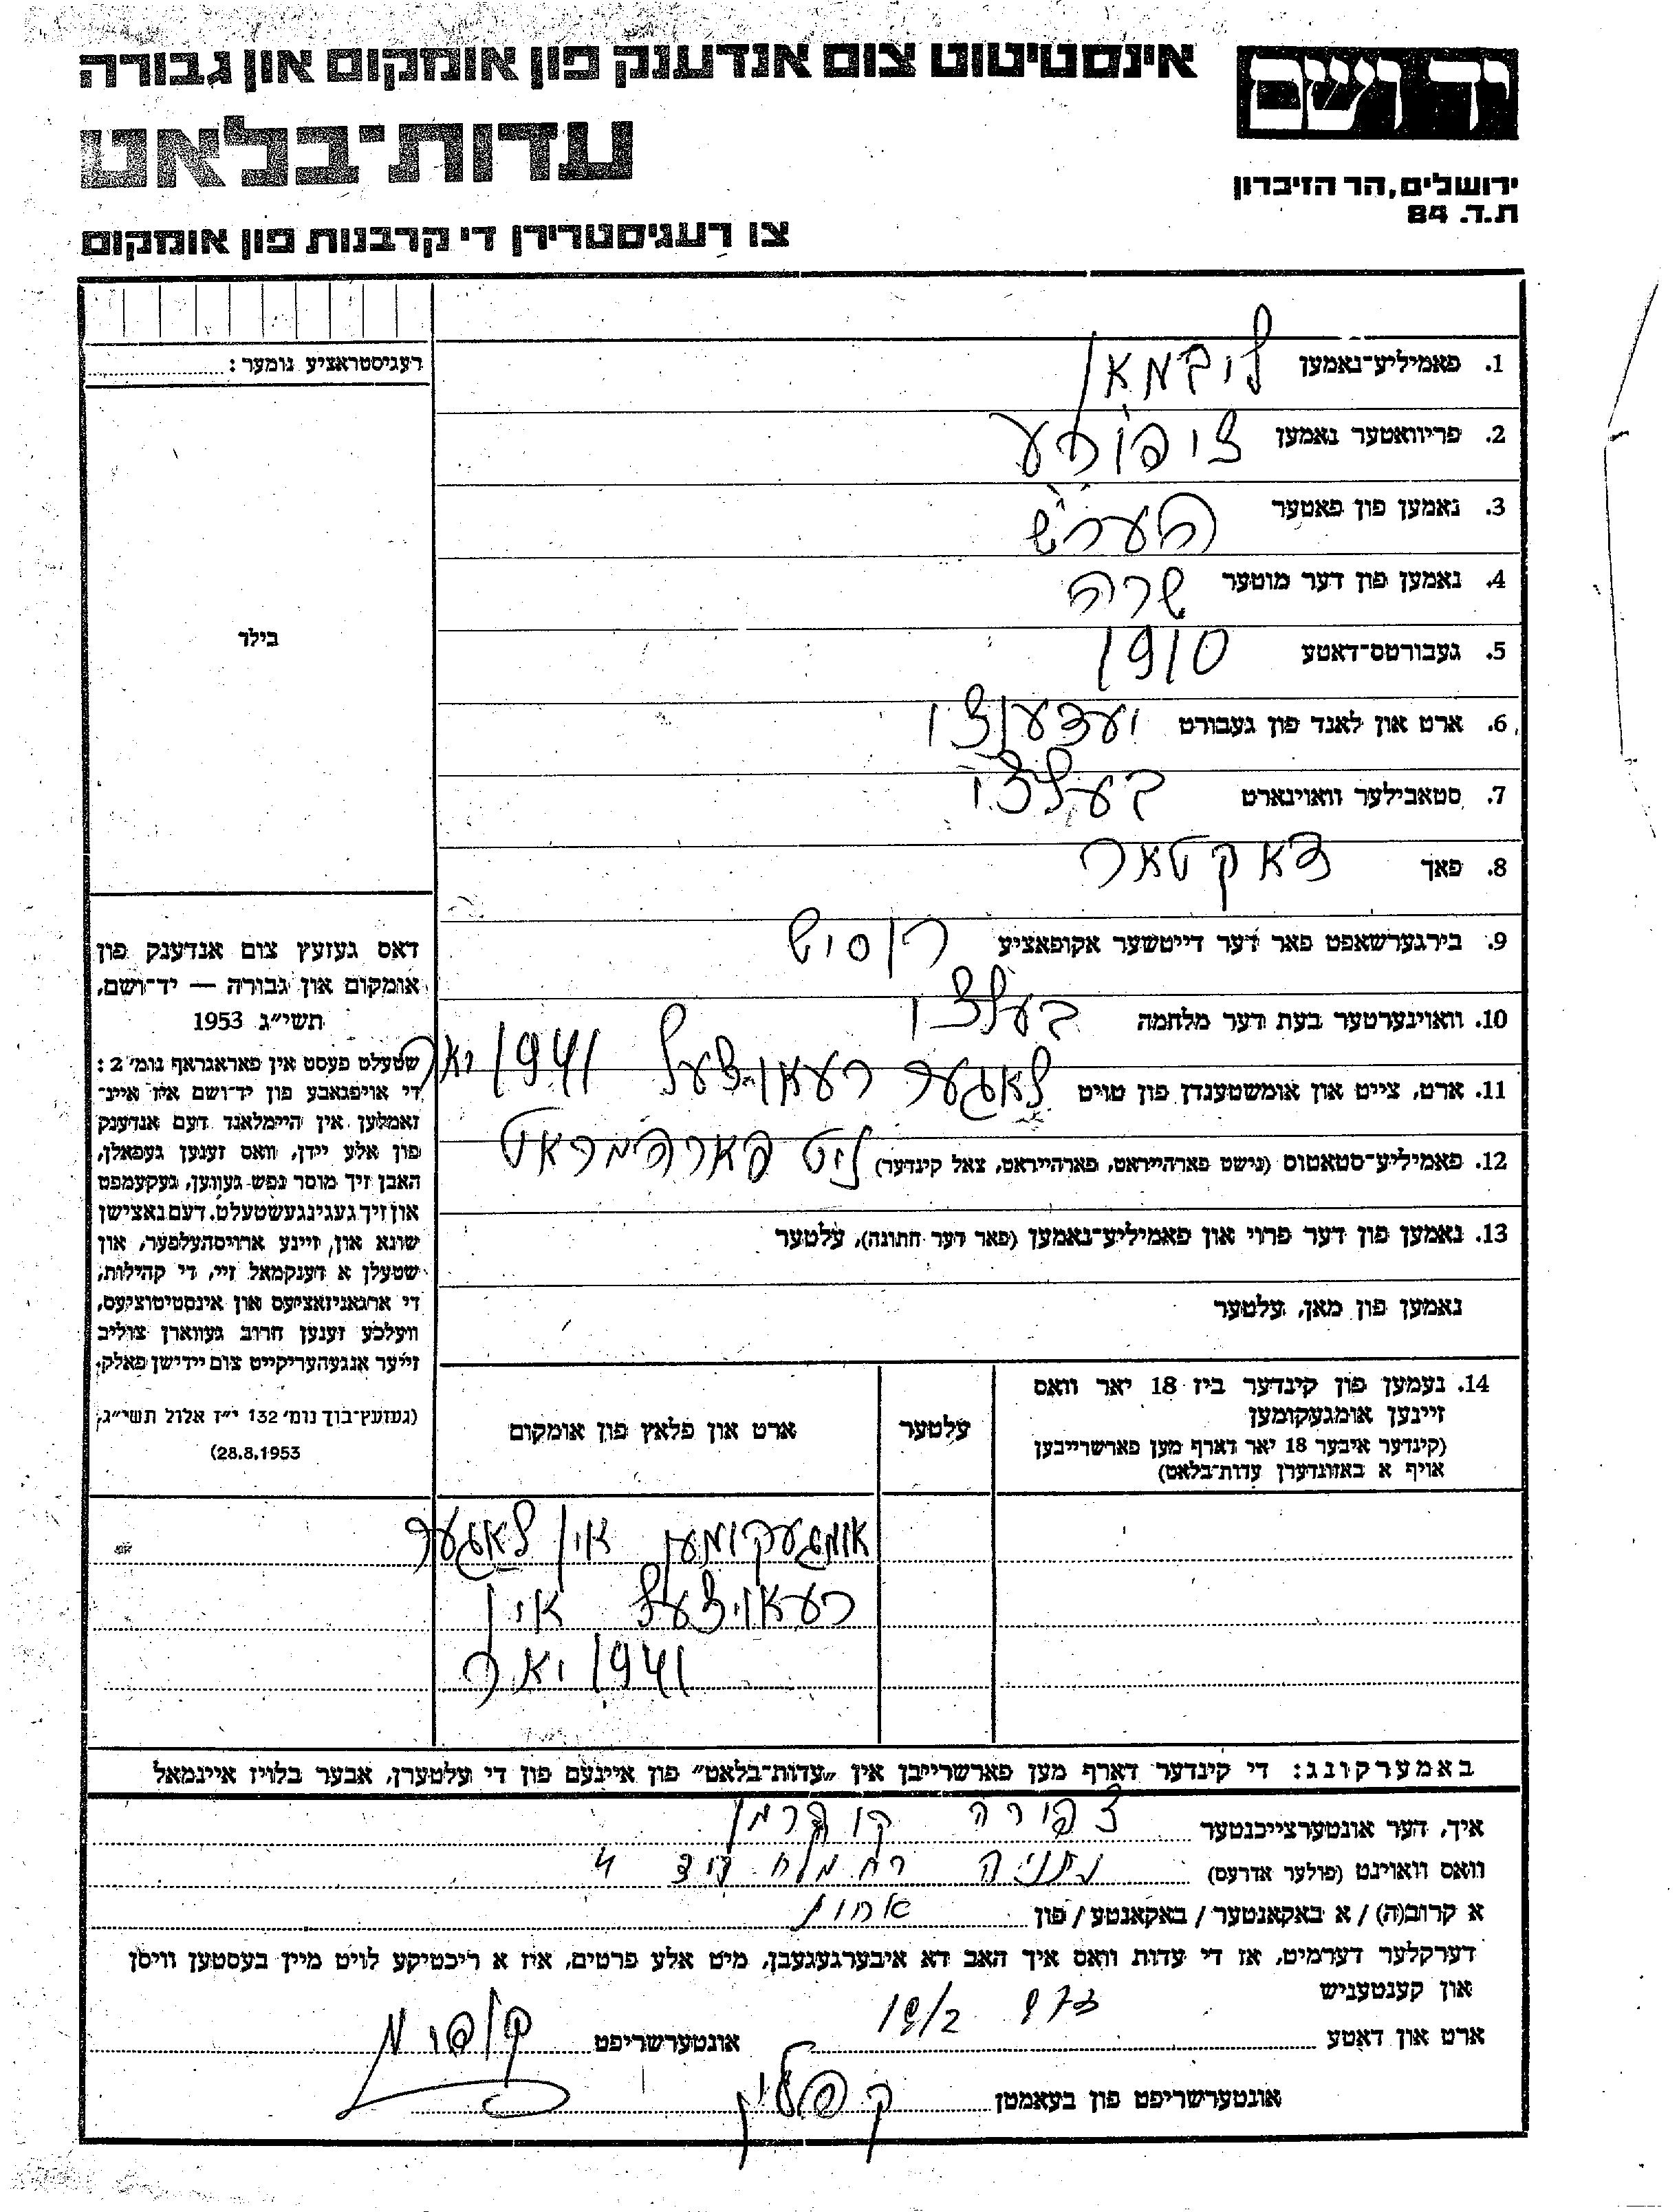 אינסטיטוט צום אנדענק פון אומקום און גבורה
יד ושם
עדות-בלאט
ירושלים, הר הזיכרון
ת.ד. 84
צו רעגיסטרירן די קרבנות פון אומקום
רעגיסטראציע נומער:
1. פאמיליע-נאמען ליבמאן
2. פריוואטער נאמען ציפורע
3. נאמען פון פאטער הערש
4. נאמען פון דער מוטער שרה
בילד
5. געבורטס-דאטע 1910
6. ארט און לאנד פון געבורט
7. סטאבילער וואוינארט בעלצי
8. פאך דאקטאר
9. בירגערשאפט פאר דער דייטשער אקופאציע
10. וואוינערטער בעת דער מלחמה בעלצי
11. ארט, צייט און אומשטענדן פון טויט לאגער רעאוצעל 1941 יאר
12. פאמיליע-סטאטוס (נישט פארהייראט, פארהייראט, צאל קינדער)
13. נאמען פון דער פרוי און פאמיליע-נאמען (פאר דער חתונה), עלטער
נאמען פון מאן, עלטער
דאס געזעץ צום אנדענק פון
אומקום און גבורה — יד-ושם,
תשי״ג 1953
שטעלט פעסט אין פאראגראף נומ׳ 2:
די אויפגאבע פון יד-ושם איז איינ-
זאמלען אין היימלאנד דעם אנדענק
פון אלע יידן, וואס זענען געפאלן,
האבן זיך מוסר נפש געווען, געקעמפט
און זיך געגינגעשטעלט. דעם נאצישן
שונא און, זיינע ארויסהעלפער, און
שטעלן א דענקמאל זיי, די קהילות,
די ארגאניזאציעס און אינסטיטוציעס,
וועלכע זענען חרוב געווארן צוליב
זייער אנגעהעריקייט צום יידישן פאלק.
(געזעץ-בוך נומ׳ 132 י״ז אלול תשי״ג,
28.8.1953)
14. נעמען פון קינדער ביז 18 יאר וואס
זיינען אומגעקומען
(קינדער איבער 18 יאר דארף מען פארשרייבען
אויף א באזונדערן עדות-בלאט)
עלטער
ארט און פלאץ פון אומקום
אומגעקומען אין לאגער
רעאוצעל אין
1941 יאר
באמערקונג: די קינדער דארף מען פארשרייבן אין „עדות-בלאט" פון איינעם פון די עלטערן, אבער בלויז איינמאל
איך, דער אונטערצייכנטער צפורה
וואס וואוינט (פולער אדרעס) נתניה רח מלח 4
א קרוב(ה) / א באקאנטער / באקאנטע / פון אחות
דערקלער דערמיט, אז די עדות וואס איך האב דא איבערגעגעבן, מיט אלע פרטים, איז א ריכטיקע לויט מיין בעסטען וויסן
און קענטעניש
ארט און דאטע 19/2 אונטערשריפט
אונטערשריפט פון בעאמטן קפלין